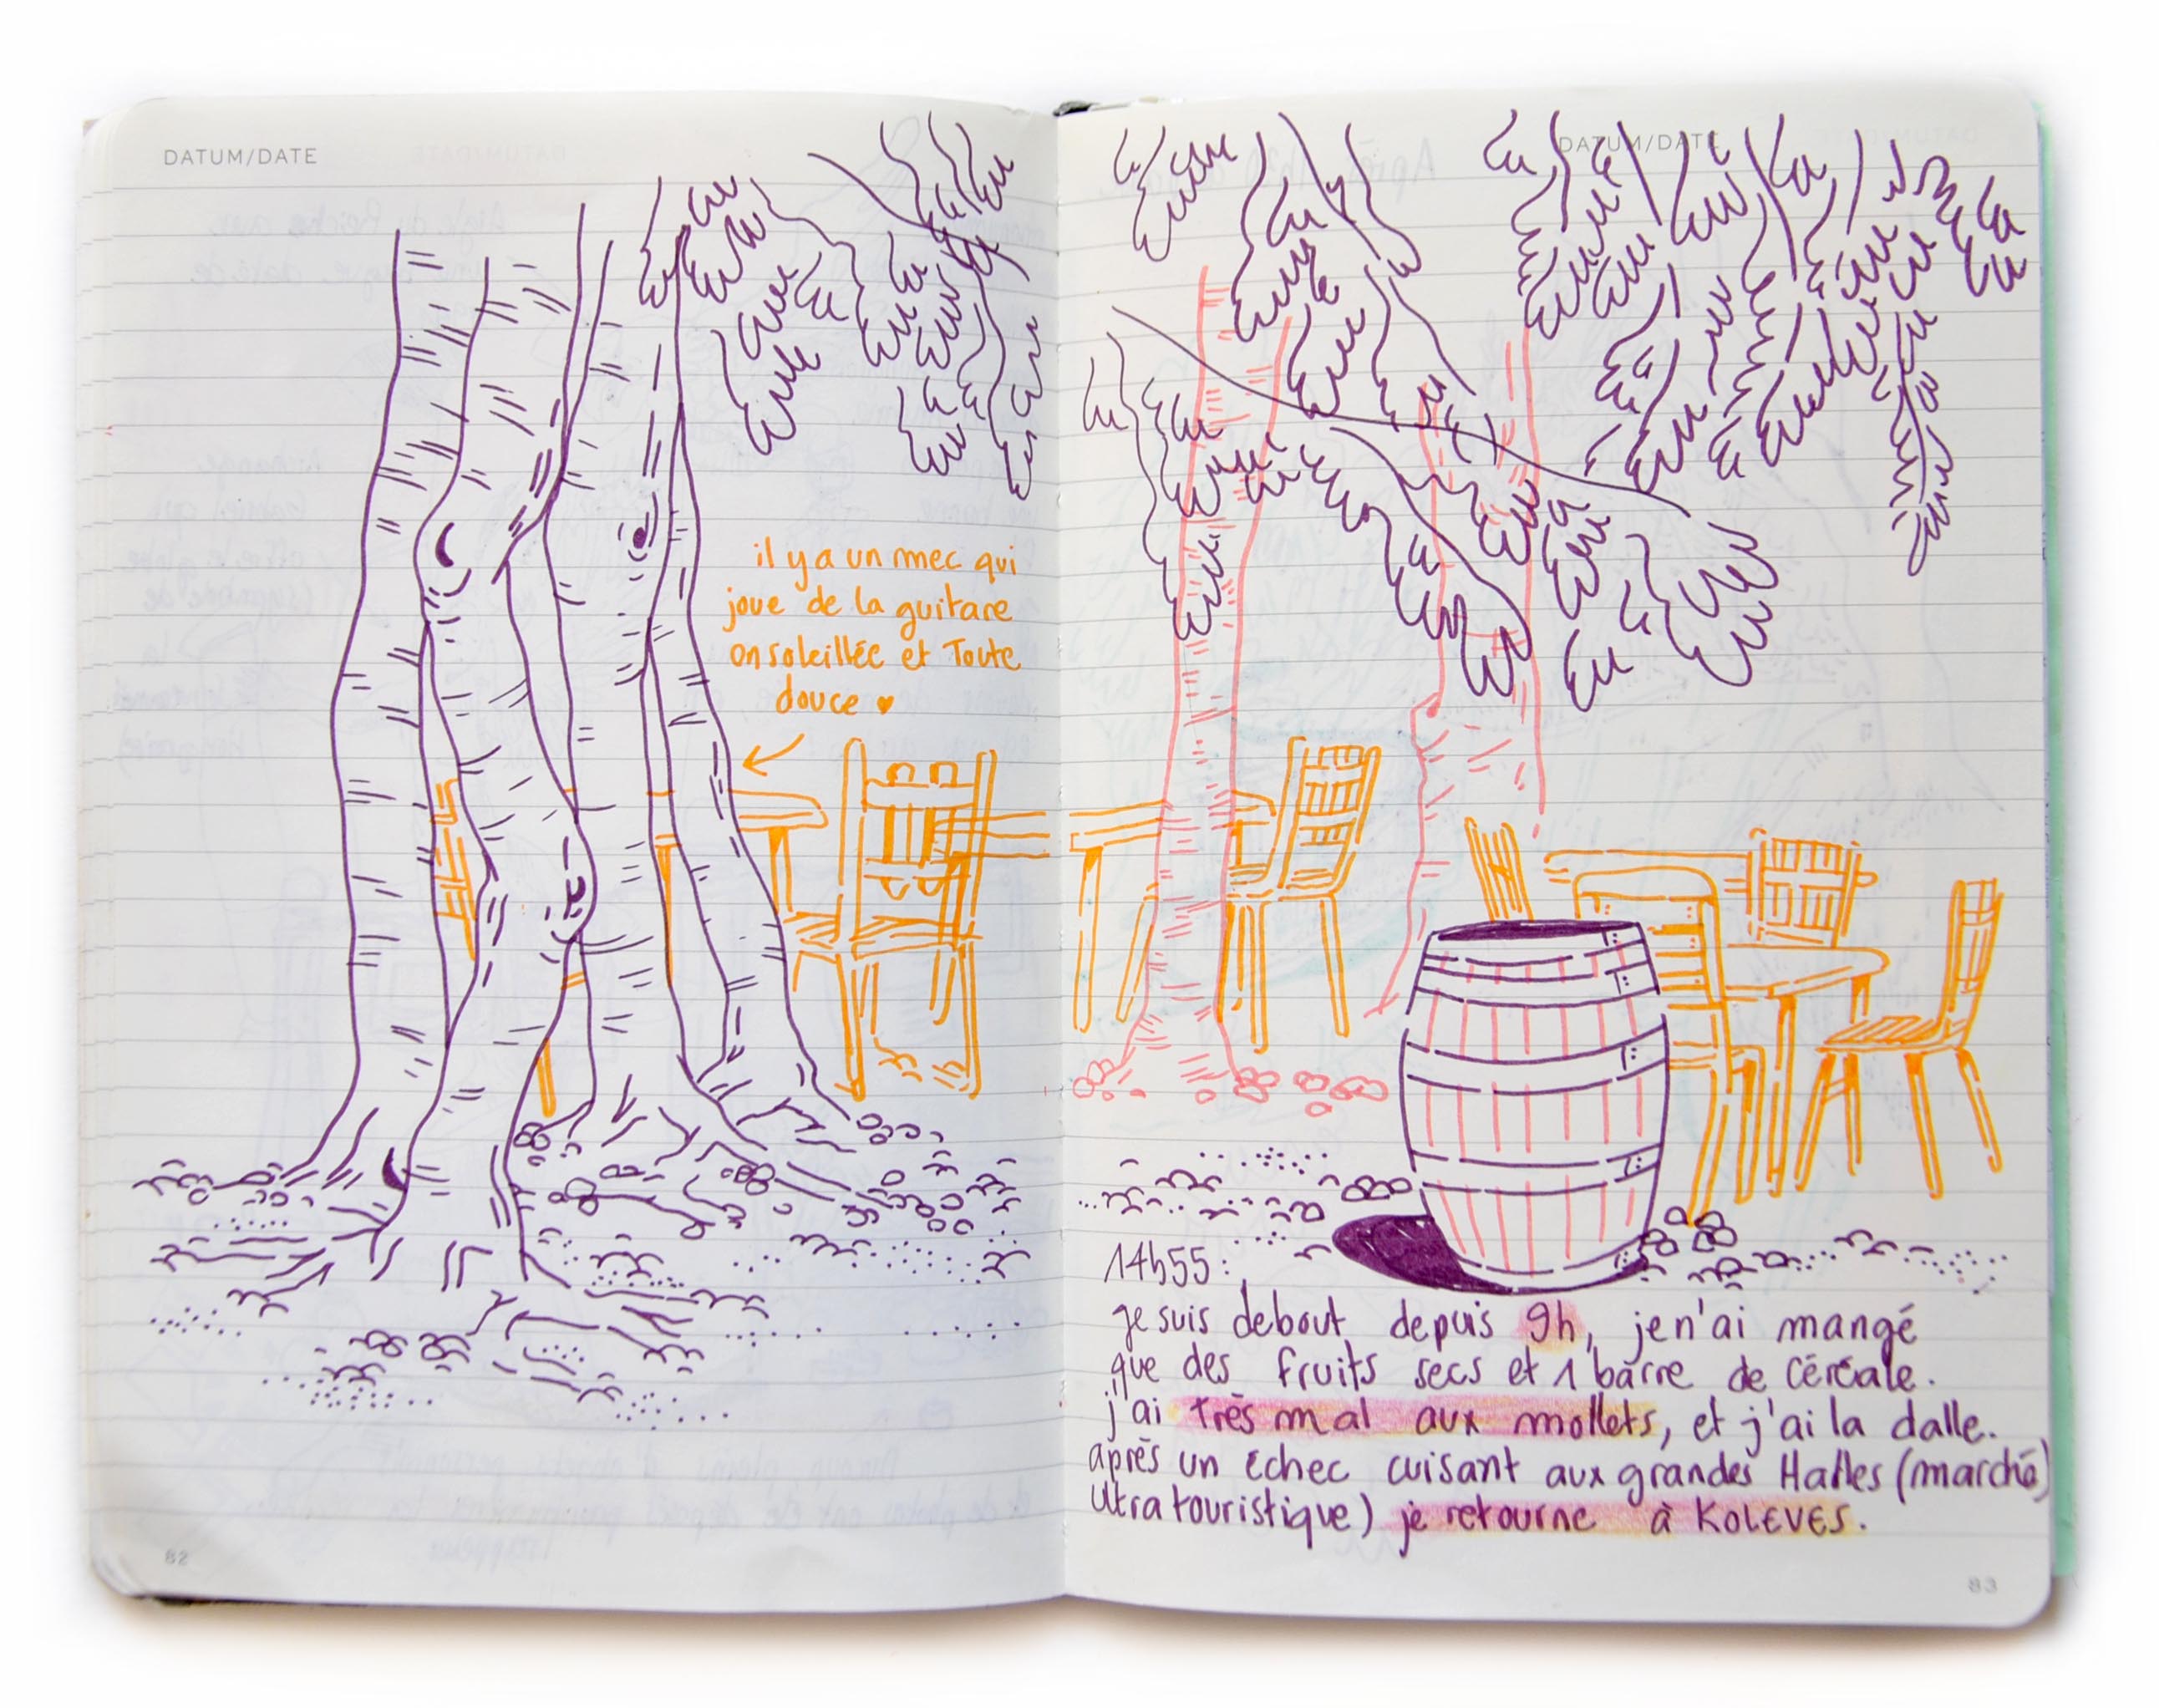 DATUM/DATE
il y a un mec qui
joue de la guitare
onsoleillée et Toute
douce ♥
82
DATUM/DATE
14h55:
je suis debout depuis 9h, je n'ai mangé
que des fruits secs et 1 barre de céréale.
j'ai très mal aux mollets, et j'ai la dalle.
après un échec cuisant aux grandes Halles (marché
ultra touristique) je retourne à KOLEVES.
83